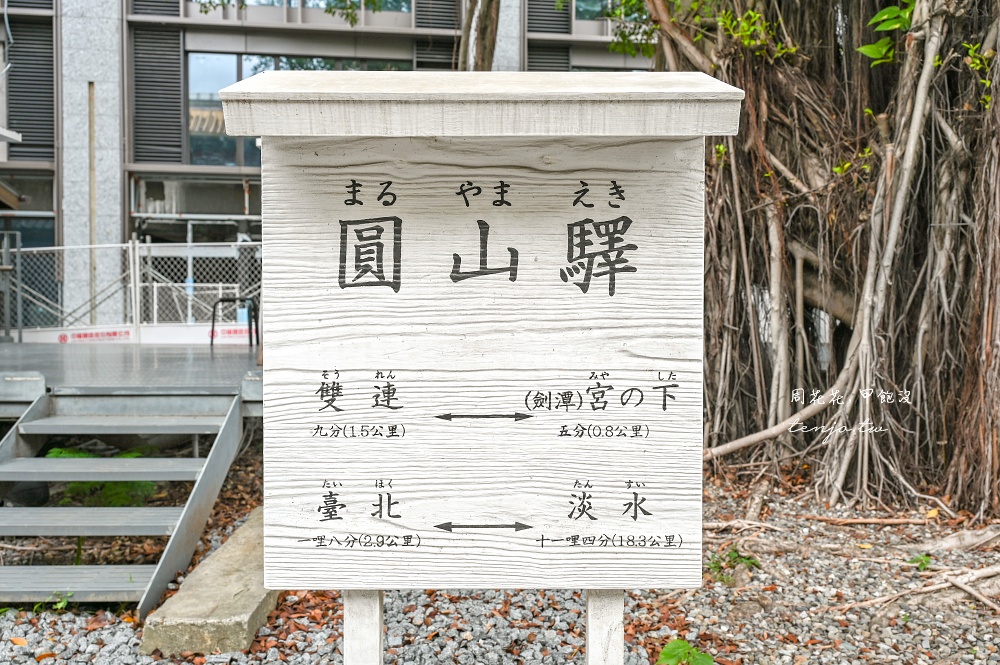 まる やま えき
圓山驛
そう れん
雙連
九分(1.5公里)
みや した
(劍潭)宮の下
五分(0.8公里)
たい ほく
臺北
一哩八分(2.9公里)
たん すい
淡水
十一哩四分(18.3公里)
周花花 甲飽沒
tenjo.tw